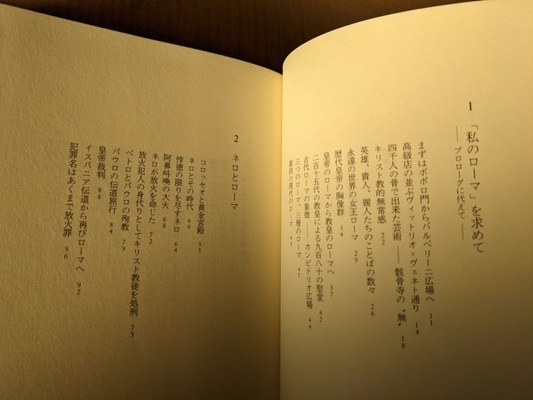 1 「私のローマ」を求めて
――プロローグに代えて――
まずはポポロ門からバルベリーニ広場へ 11
高級店の並ぶヴィットリオ＝ヴェネト通り 14
四千人の骨で出来た芸術――骸骨寺の〝無〟 18
キリスト教的無常感 22
英雄、貴人、麗人たちのことばの数々 26
永遠の世界の女王ローマ 29
歴代皇帝の胸像群 34
皇帝のローマから教皇のローマへ 37
二百十五代の教皇による九百八十の聖堂 42
古代ローマの象徴――カンピドリオ広場 44
三つのローマ、三種のローマ 47
2 ネロとローマ
コロッセオと黄金宮殿 55
ネロとその時代 60
悖徳の限りを尽すネロ 64
阿鼻叫喚の大火 68
ネロが放火を命じた 72
放火犯人の身代りとしてキリスト教徒を処刑 75
ペトロとパウロの再教 79
パウロの伝道旅行 84
皇帝裁判 88
イスパニア伝道から再びローマへ 92
犯罪名はあくまで放火罪 96